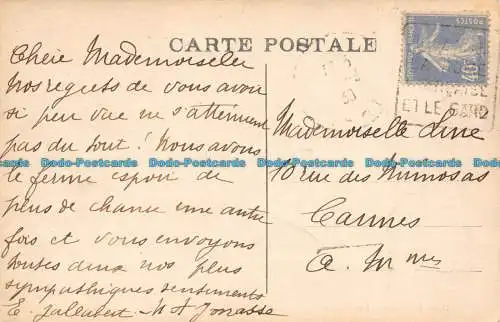 CARTE POSTALE
Chère Mademoiselle
Nos regrets de vous avoir
si peu vue ne s'attenuent
pas du tout! Nous avons
le ferme espoir de
plus de chance une autre
fois et vous envoyons
toutes deux nos plus
sympathiques sentiments
E. Jallabert M A Jonasse
POSTES
ET LE GARD
Mademoiselle Line
10 rue des Mimosas
Cannes
A. Mmes
Dodo-Postcards Dodo-Postcards Dodo-Postcards Dodo-Postcards